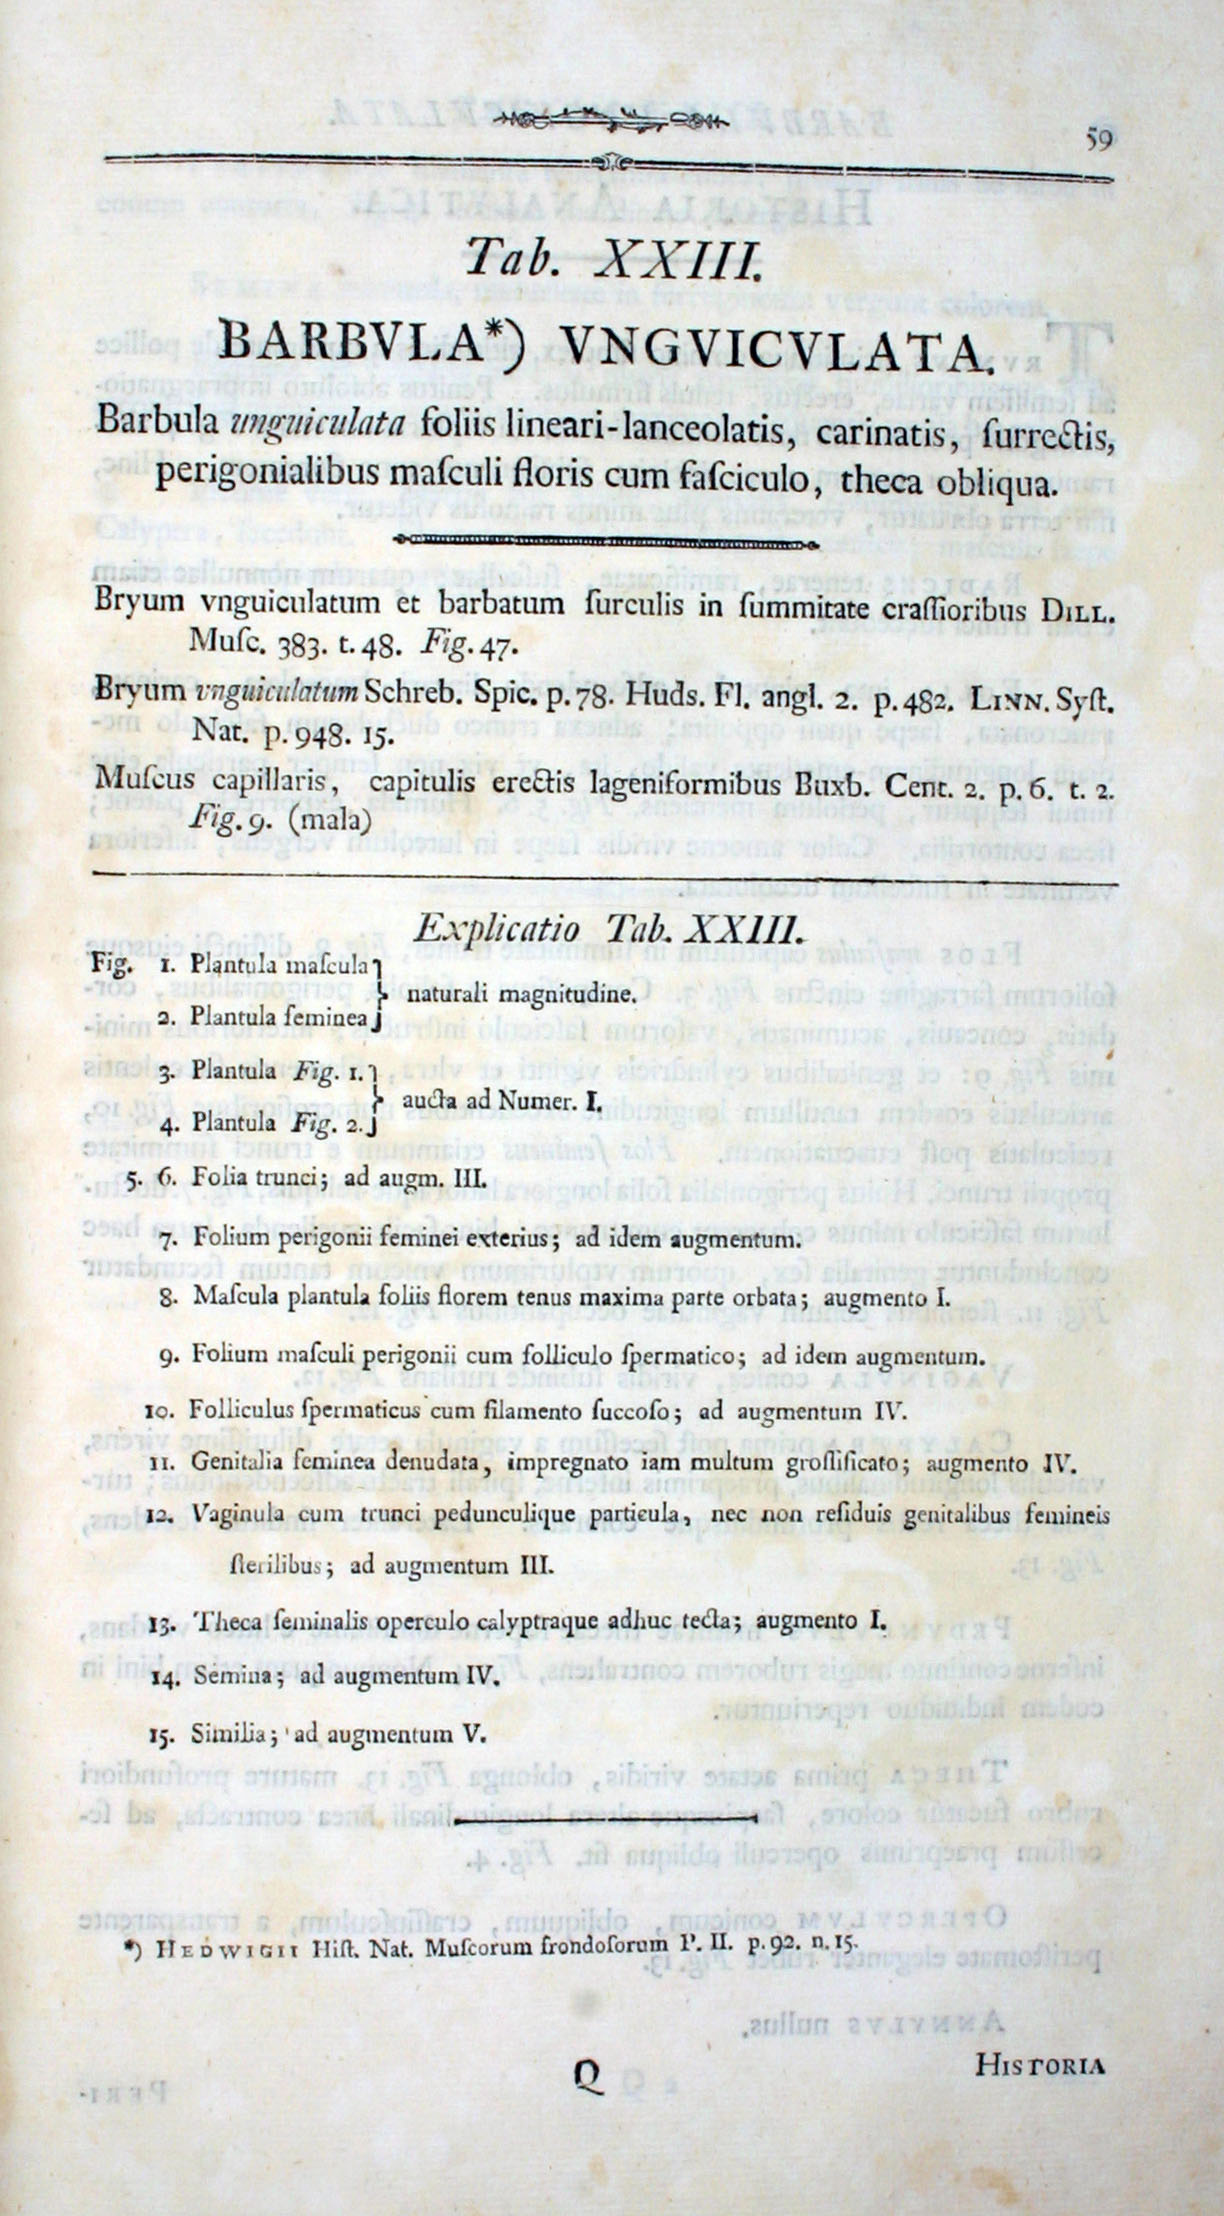 59
Tab. XXIII.
BARBVLA*) VNGVICVLATA.
Barbula unguiculata foliis lineari-lanceolatis, carinatis, ſurrectis,
perigonialibus maſculi floris cum faſciculo, theca obliqua.
Bryum vnguiculatum et barbatum ſurculis in ſummitate craſſioribus DILL.
Muſc. 383. t. 48. Fig. 47.
Bryum vnguiculatum Schreb. Spic. p. 78. Huds. Fl. angl. 2. p. 482. LINN. Syſt.
Nat. p. 948. 15.
Muſcus capillaris, capitulis erectis lageniformibus Buxb. Cent. 2. p. 6. t. 2.
Fig. 9. (mala)
Explicatio Tab. XXIII.
Fig. 1. Plantula maſcula
naturali magnitudine.
2. Plantula feminea
3. Plantula Fig. 1.
aucta ad Numer. I.
4. Plantula Fig. 2.
5. 6. Folia trunci; ad augm. III.
7. Folium perigonii feminei exterius; ad idem augmentum.
8. Maſcula plantula foliis florem tenus maxima parte orbata; augmento I.
9. Folium maſculi perigonii cum folliculo ſpermatico; ad idem augmentum.
10. Folliculus ſpermaticus cum filamento ſuccoſo; ad augmentum IV.
11. Genitalia feminea denudata, impregnato iam multum groſſificato; augmento IV.
12. Vaginula cum trunci pedunculique particula, nec non reſiduis genitalibus femineis
ſterilibus; ad augmentum III.
13. Theca ſeminalis operculo calyptraque adhuc tecta; augmento I.
14. Semina; ad augmentum IV.
15. Similia; ad augmentum V.
*) HEDWIGII Hiſt. Nat. Muſcorum frondoſorum P. II. p. 92. n. 15.
Q
HISTORIA